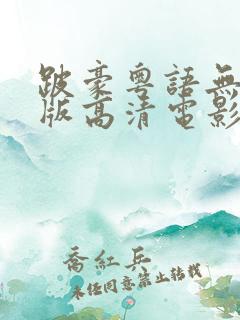 跛豪粵語無
版高清電影
喬紅兵
未经同意禁止转载